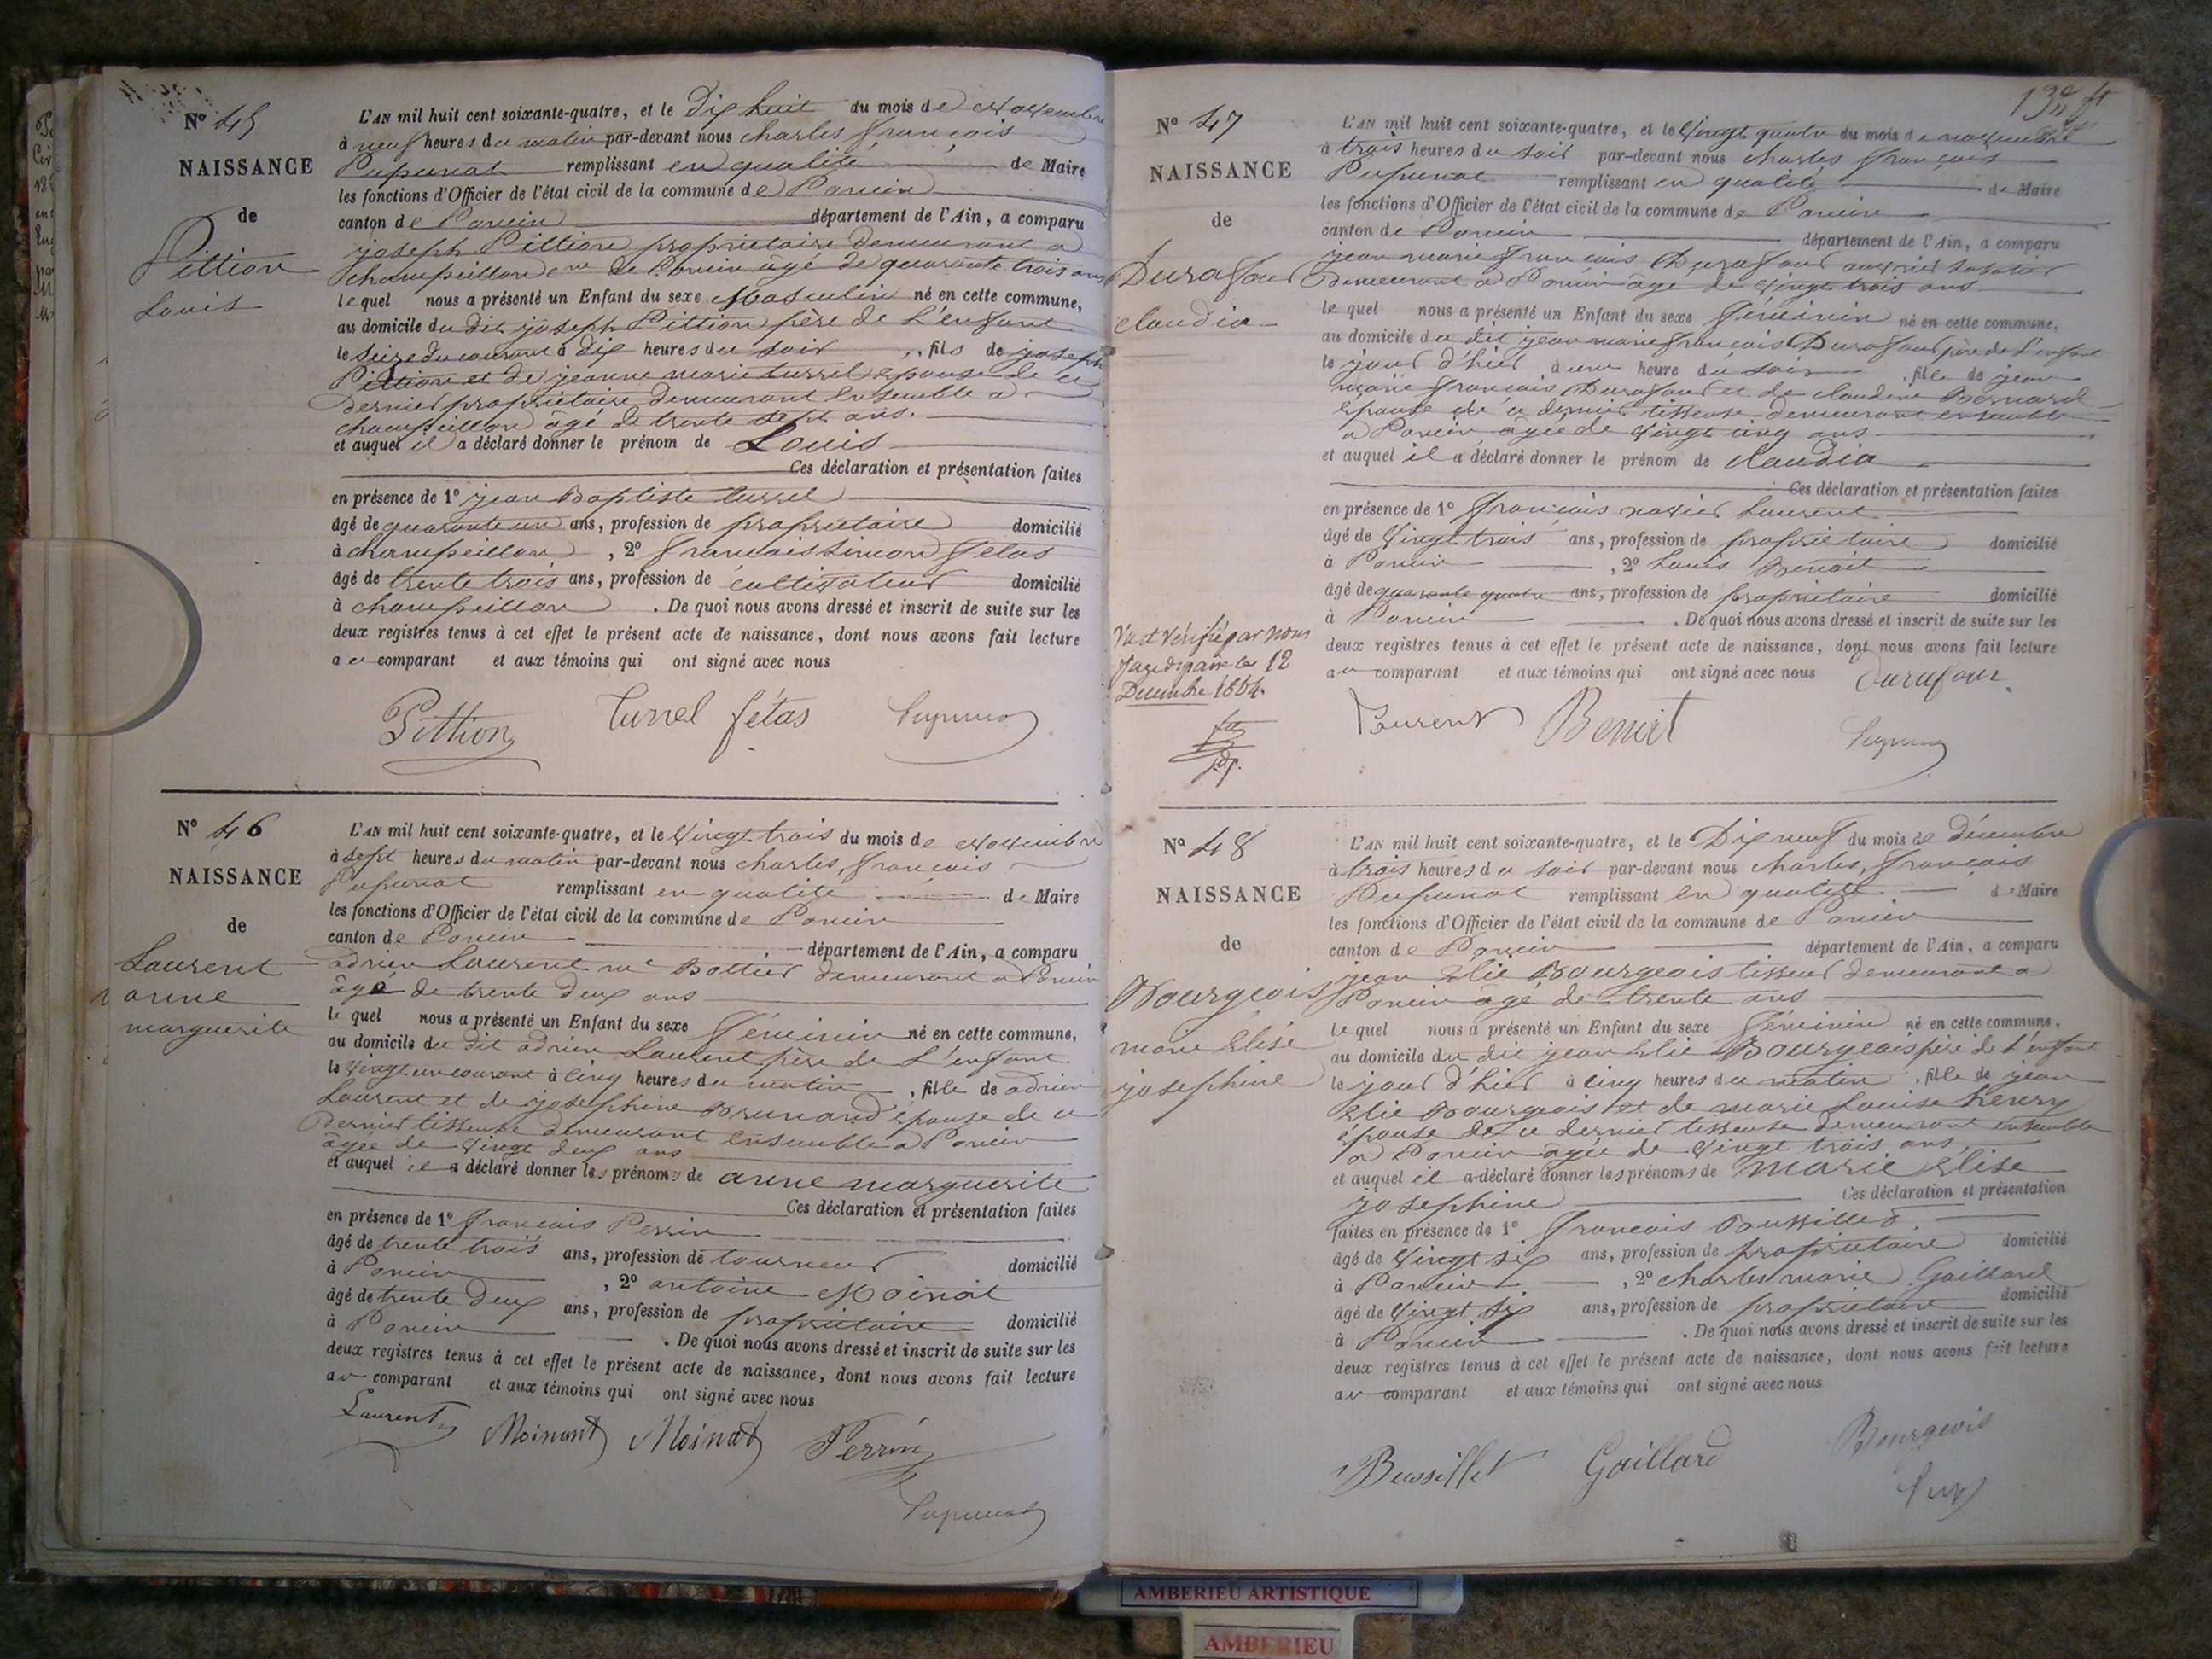 No 45
NAISSANCE
de
Pittion
Louis
L'AN mil huit cent soixante-quatre, et le Dix huit du mois de Novembre
à neuf heures du matin par-devant nous charles françois
Pupunat remplissant en qualité de Maire
les fonctions d'Officier de l'état civil de la commune de Poncin
canton de Poncin département de l'Ain, a comparu
joseph Pittion propriétaire demeurant a
champeillon cne de Poncin âgé de quarante trois ans
lequel nous a présenté un Enfant du sexe Masculin né en cette commune,
au domicile du dit joseph Pittion père de l'enfant
le seize du courant à dix heures du soir, fils de joseph
Pittion et de jeanne marie turrel épouse de ce
dernier propriétaire demeurant ensemble a
champeillon âgé de trente sept ans.
et auquel il a déclaré donner le prénom de Louis
Ces déclaration et présentation faites
en présence de 1º jean Baptiste turrel
âgé de quarante un ans, profession de propriétaire domicilié
à champeillon, 2º françois Simon fetas
âgé de trente trois ans, profession de cultivateur domicilié
à champeillon. De quoi nous avons dressé et inscrit de suite sur les
deux registres tenus à cet effet le présent acte de naissance, dont nous avons fait lecture
au comparant et aux témoins qui ont signé avec nous
Pittion Turrel fétas Pupunat
No 46
NAISSANCE
de
Laurent
anne
marguerite
L'AN mil huit cent soixante-quatre, et le Vingt trois du mois de Novembre
à sept heures du matin par-devant nous charles, françois
Pupunat remplissant en qualité de Maire
les fonctions d'Officier de l'état civil de la commune de Poncin
canton de Poncin département de l'Ain, a comparu
adrien Laurent md Bottier demeurant a Poncin
âgé de trente deux ans
le quel nous a présenté un Enfant du sexe féminin né en cette commune,
au domicile du dit adrien Laurent père de l'enfant
le Vingt un courant à cinq heures du matin, fille de adrien
Laurent et de josephine Brunand épouse de ce
dernier tisseuse demeurant ensemble a Poncin
âgée de Vingt deux ans
et auquel il a déclaré donner les prénoms de anne marguerite
Ces déclaration et présentation faites
en présence de 1º françois Perrin
âgé de trente trois ans, profession de tourneur domicilié
à Poncin, 2º antoine Moinat
âgé de trente deux ans, profession de propriétaire domicilié
à Poncin. De quoi nous avons dressé et inscrit de suite sur les
deux registres tenus à cet effet le présent acte de naissance, dont nous avons fait lecture
au comparant et aux témoins qui ont signé avec nous
Laurent Moinant Moinat Perrin
Pupunat
No 47
NAISSANCE
de
Durafour
claudia
Vu et Vérifié par nous
juge de paix le 12
Decembre 1864
L'AN mil huit cent soixante-quatre, et le Vingt quatre du mois de novembre
à trois heures du soir par-devant nous charles françois
Pupunat remplissant en qualité de Maire
les fonctions d'Officier de l'état civil de la commune de Poncin
canton de Poncin département de l'Ain, a comparu
jean marie françois Durafour ouvrier sabotier
demeurant a Poncin âgé de Vingt trois ans
le quel nous a présenté un Enfant du sexe féminin né en cette commune,
au domicile du dit jean marie françois Durafour père de l'enfant
le jour d'hier à une heure du soir, fille de jean
marie françois Durafour et de claudine Bernard
épouse de ce dernier tisseuse demeurant ensemble
a Poncin âgée de Vingt cinq ans
et auquel il a déclaré donner le prénom de claudia
Ces déclaration et présentation faites
en présence de 1º françois xavier Laurent
âgé de Vingt trois ans, profession de propriétaire domicilié
à Poncin, 2º Louis Benoit
âgé de quarante quatre ans, profession de propriétaire domicilié
à Poncin. De quoi nous avons dressé et inscrit de suite sur les
deux registres tenus à cet effet le présent acte de naissance, dont nous avons fait lecture
au comparant et aux témoins qui ont signé avec nous Durafour
Laurent Benoit Pupunat
No 48
NAISSANCE
de
Bourgeois
marie Elise
josephine
L'AN mil huit cent soixante-quatre, et le Dix neuf du mois de décembre
à trois heures du soir par-devant nous charles, françois
Pupunat remplissant en qualité de Maire
les fonctions d'Officier de l'état civil de la commune de Poncin
canton de Poncin département de l'Ain, a comparu
jean Elie Bourgeois tisseur demeurant a
Poncin âgé de trente ans
le quel nous a présenté un Enfant du sexe féminin né en cette commune,
au domicile du dit jean Elie Bourgeois père de l'enfant
le jour d'hier à cinq heures du matin, fille de jean
Elie Bourgeois et de marie Louise henry
épouse de ce dernier tisseuse demeurant ensemble
a Poncin âgée de Vingt trois ans
et auquel il a déclaré donner les prénoms de marie Elise
josephine Ces déclaration et présentation
faites en présence de 1º françois Bussillet
âgé de Vingt six ans, profession de propriétaire domicilié
à Poncin, 2º charles marie Gaillard
âgé de Vingt six ans, profession de propriétaire domicilié
à Poncin. De quoi nous avons dressé et inscrit de suite sur les
deux registres tenus à cet effet le présent acte de naissance, dont nous avons fait lecture
au comparant et aux témoins qui ont signé avec nous
Bussillet Gaillard Bourgeois
AMBERIEU ARTISTIQUE
AMBERIEU